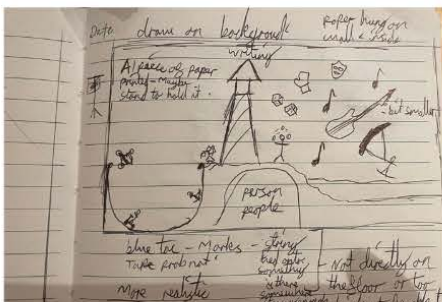 Date
draw on background
paper hung on
wall & inside
writing
A piece of paper
printed - Maybe
stand to hold it.
- bit smaller
person
people
blue tac - Marks - string
Tape prob not
bad option
something
is there
somewhere
- Not directly on
the floor or too
More realistic